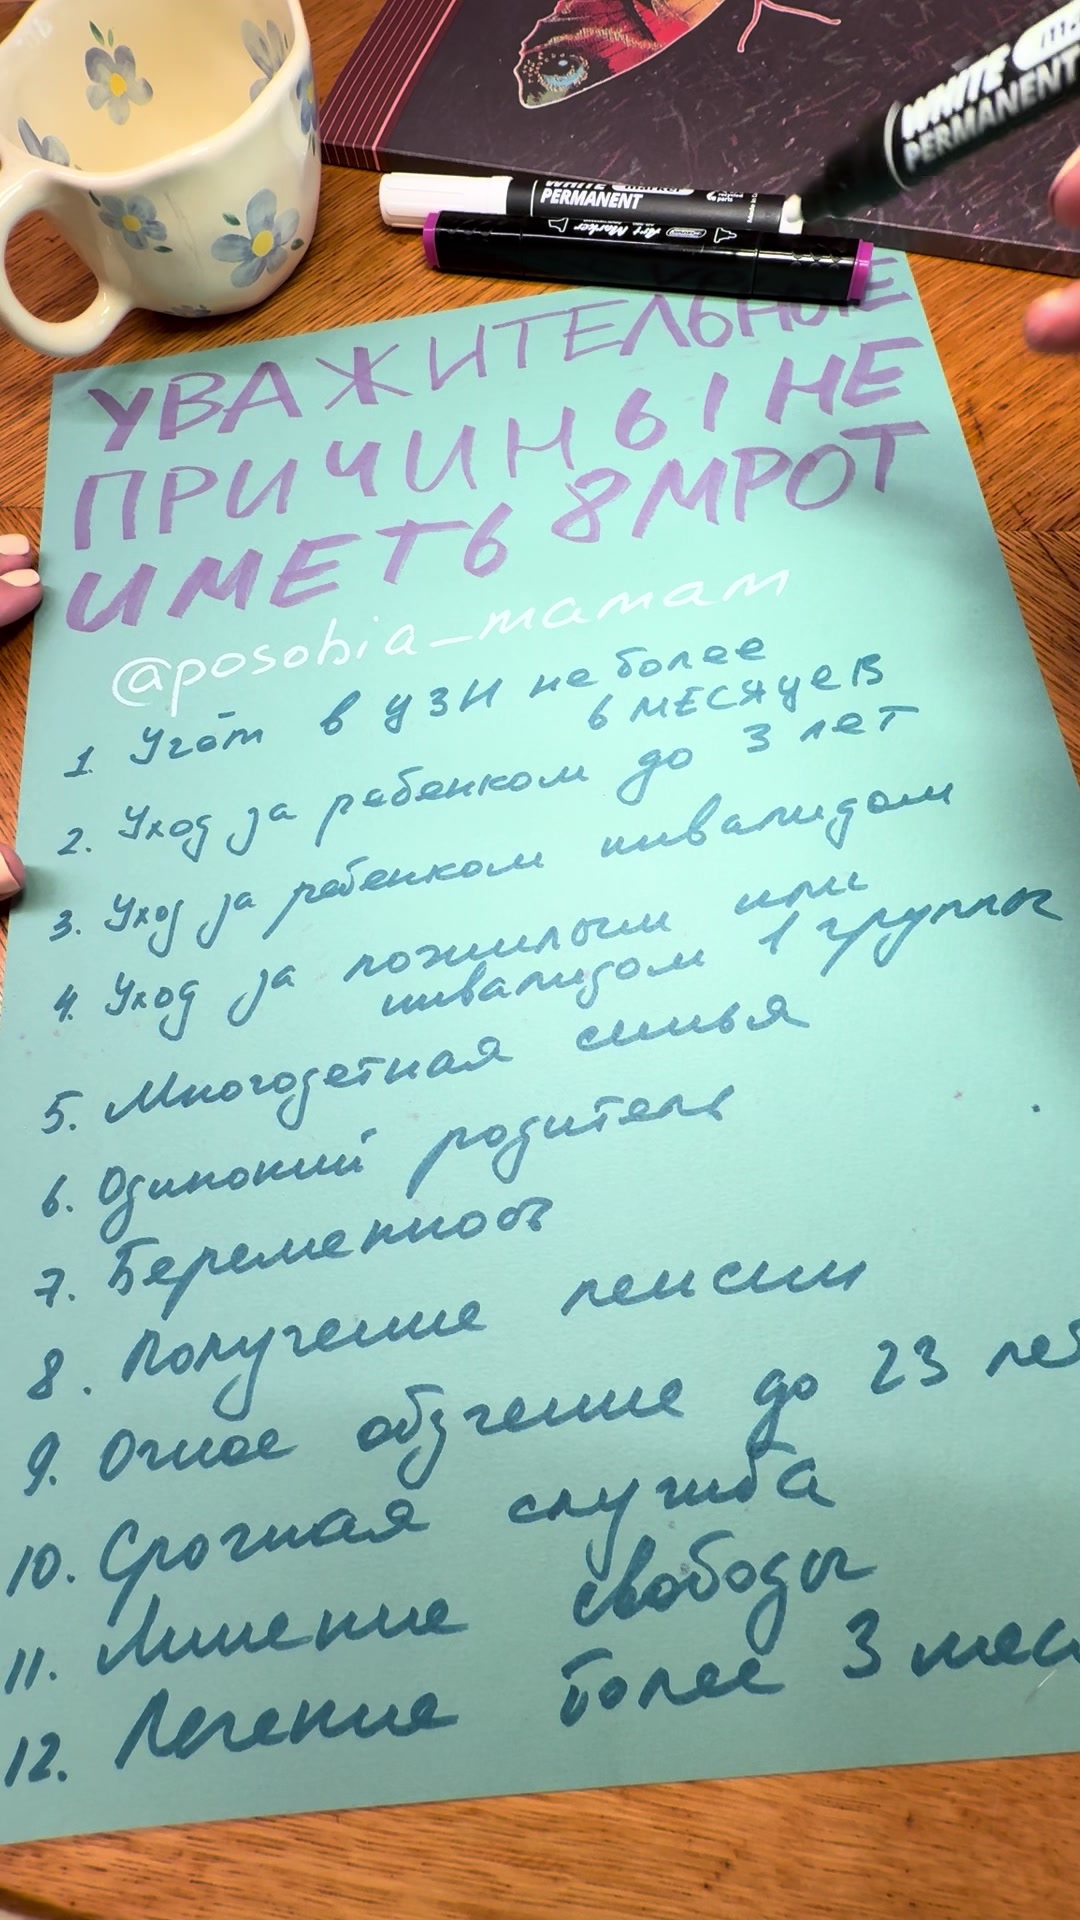 WHITE
PERMANENT
WHITE marker
PERMANENT
Art Marker
УВАЖИТЕЛЬНЫЕ
ПРИЧИНЫ НЕ
ИМЕТЬ 8 МРОТ
@posobia_mamam
1. Учёт в УЗН не более
6 МЕСЯЦЕВ
2. Уход за ребенком до 3 лет
3. Уход за ребенком инвалидом
4. Уход за пожилым или
инвалидом 1 группы
5. Многодетная семья
6. Одинокий родитель
7. Беременность
8. Получение пенсии
9. Очное обучение до 23 лет
10. Срочная служба
11. Лишение свободы
12. Лечение более 3 мес